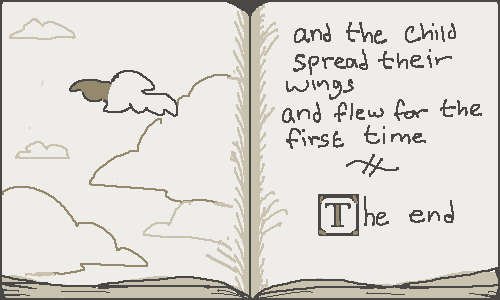 and the child
spread their
wings
and flew for the
first time
The end